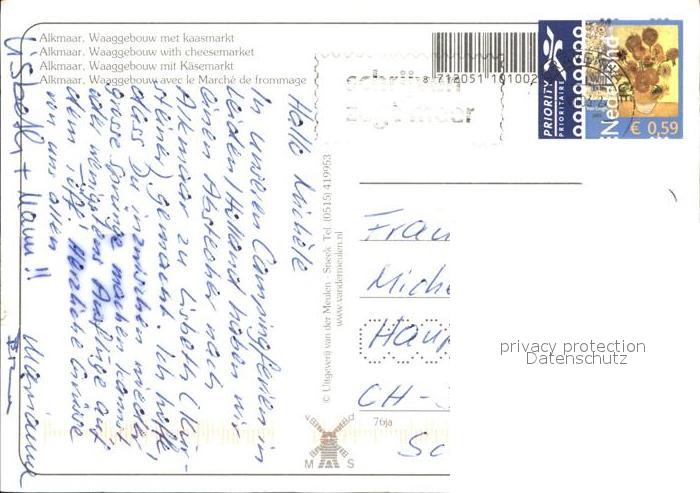 Alkmaar, Waaggebouw met kaasmarkt
Alkmaar, Waaggebouw with cheesemarket
Alkmaar, Waaggebouw mit Käsemarkt
Alkmaar, Waaggebouw avec le Marché de frommage
8 712051 101002
schrijven
zegt meer
PRIORITY
PRIORITAIRE
Nederland
€ 0,59
Hallo Michèle
In unseren Campingferien in
Leiden / Holland haben wir
einen Abstecher nach
Alkmaar zu Lisbeth (
) gemacht. Ich hoffe,
dass Du inzwischen wieder
grosse Sprünge machen kannst
oder wenigstens Ausflüge auf
dem Töff! Herzliche Grüsse
von uns allen
Lisbeth + Mann!!
Marianne
© Uitgeverij van der Meulen - Sneek Tel. (0515) 419953
www.vandermeulen.nl
Frau
Miche
Haup
CH-
Sc
76ja
v d
M S
privacy protection
Datenschutz